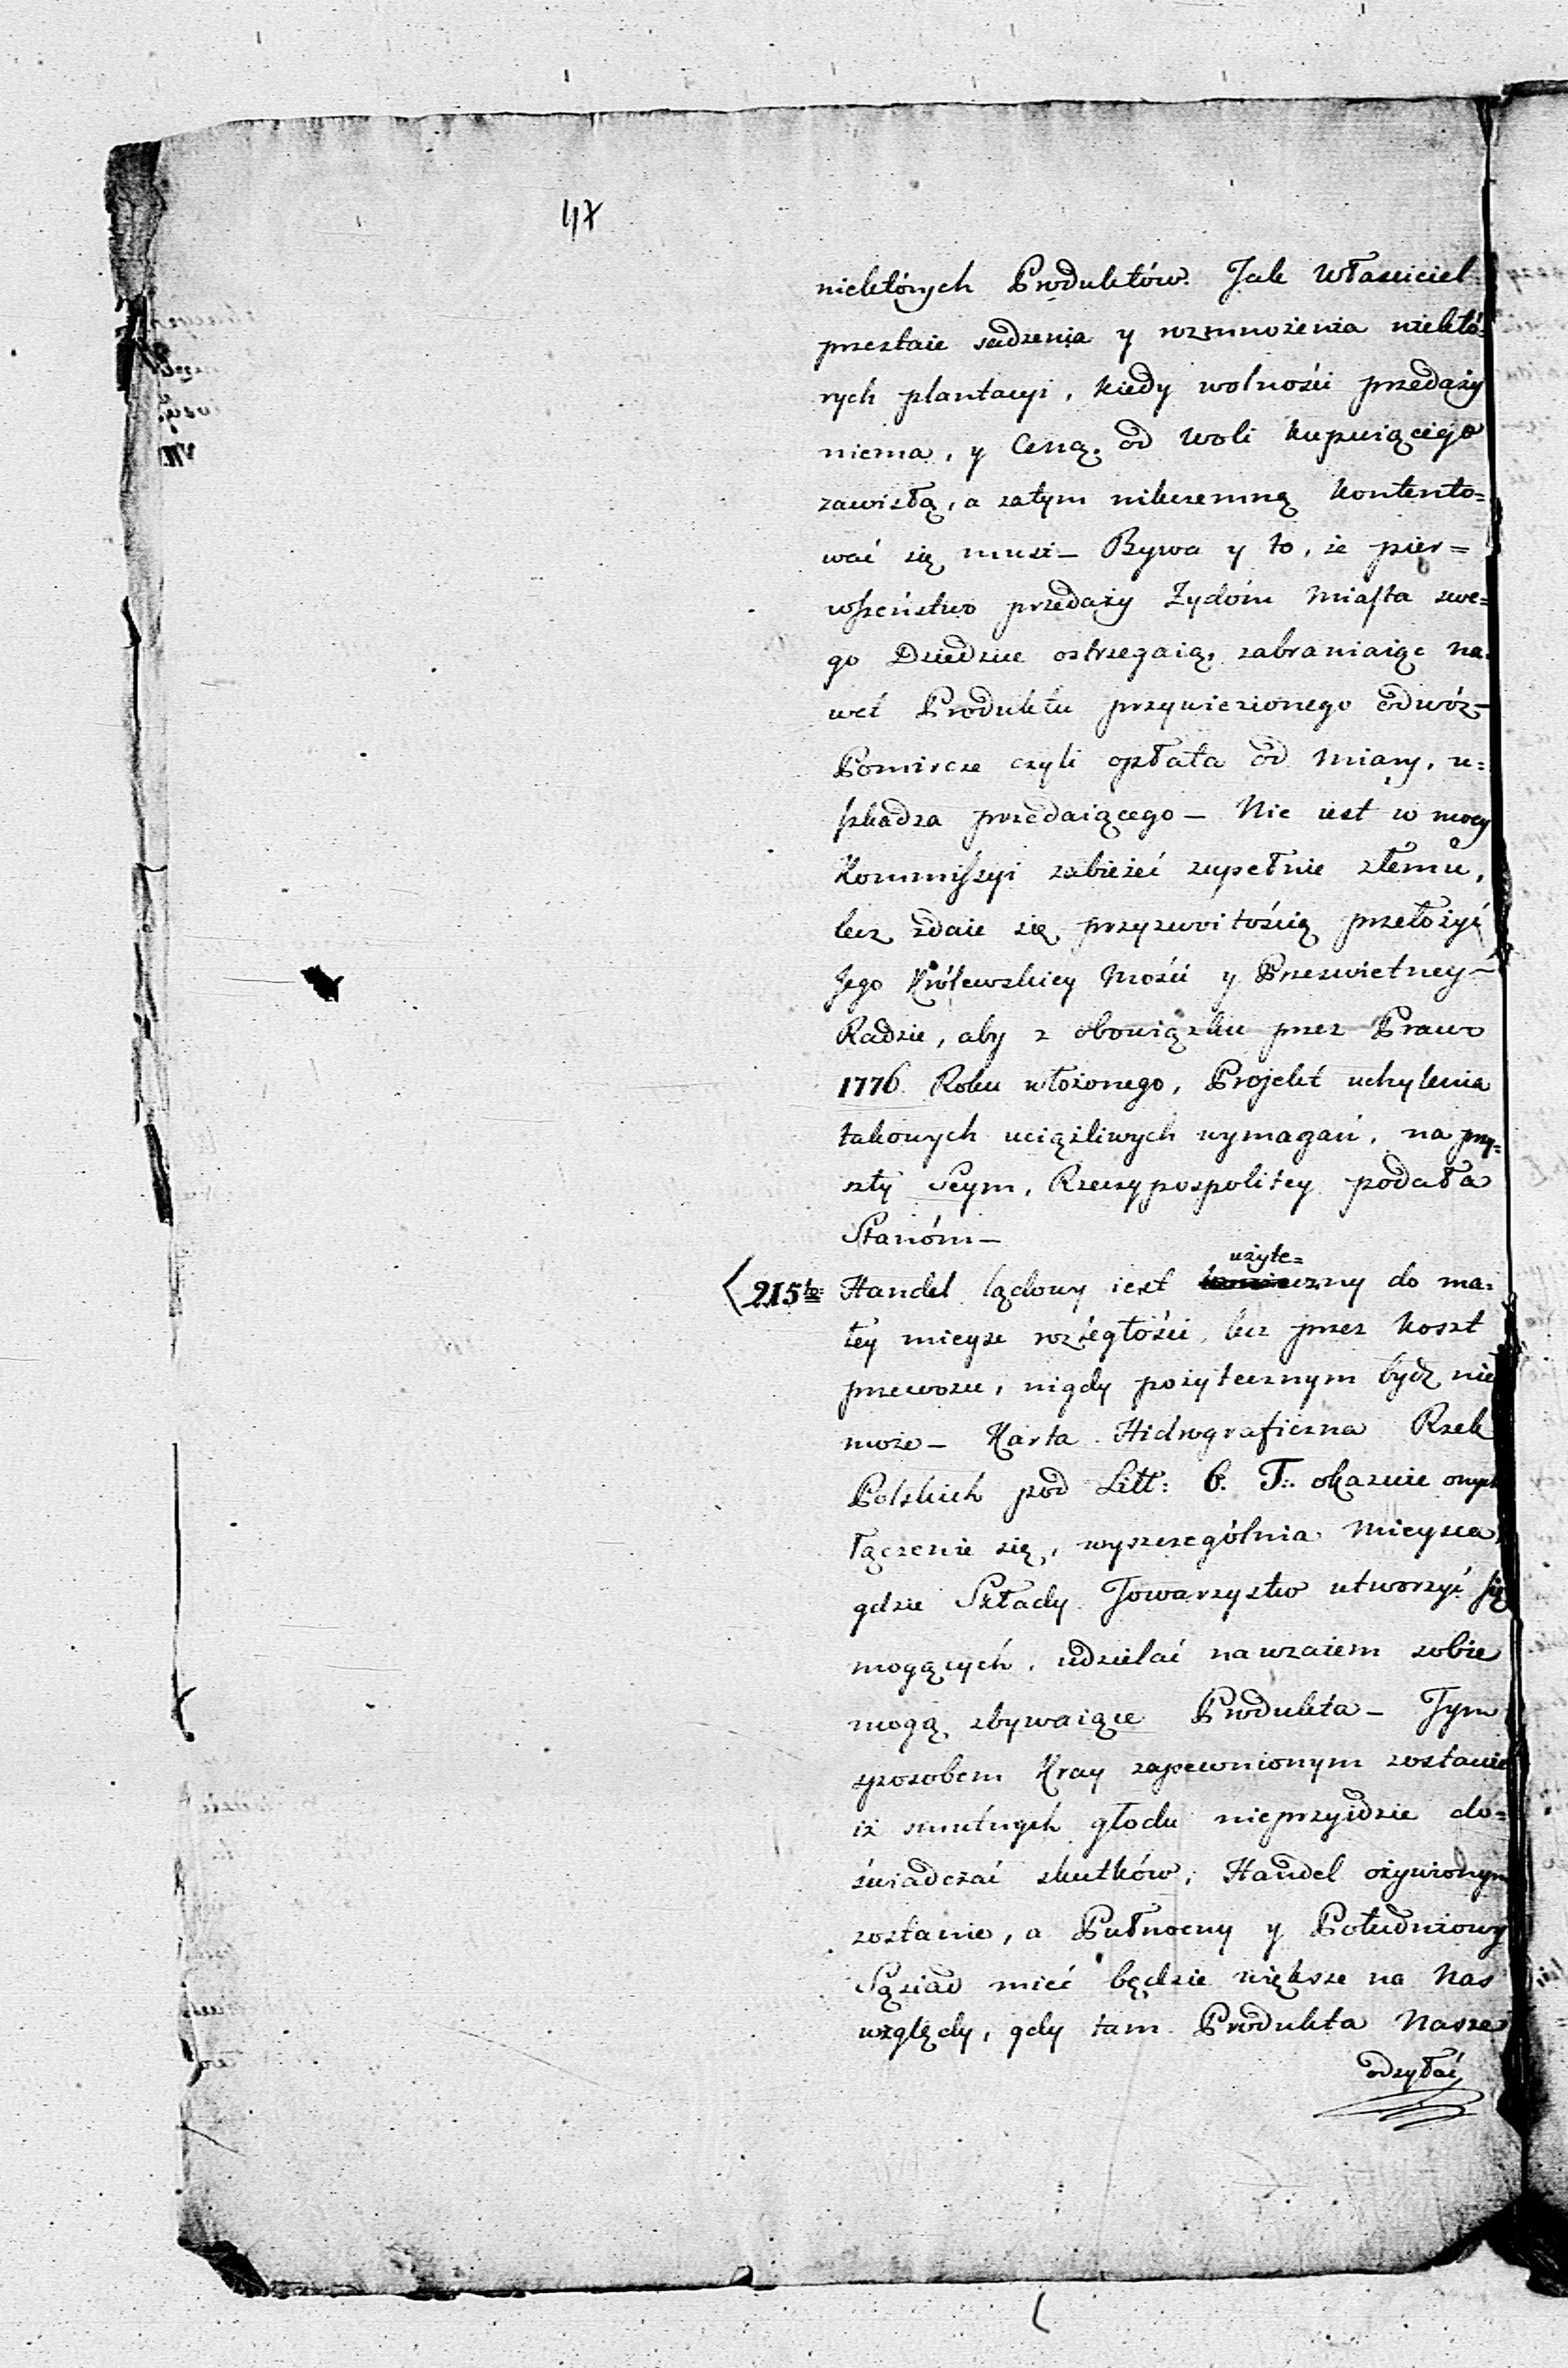 47
niektórych Produktów. Jak Własciciel
przestaie sadzenia y rozmnożenia niektó-
rych plantacyi, kiedy wolności przedaży
niema, y Ceną, od woli kupuiącego
zawisłą, a zatym nikczemną kontento=
wać się musi — Bywa y to, że pier=
wszeństwo przedaży Zydóm Miasta swe=
go Dziedzice ostrzegaią, zabraniaiąc na-
wet Produktu przywiezionego odwóz —
Pomiercze czyli opłata od miary, u=
szkadza przedaiącego — Nie iest w mocy
Kommissyi zabieżeć zupełnie złemu,
lecz zdaie się przyzwoitością przełożyć
Jego Królewskiey Mości y Przeswietney —
Radzie, aby z obowiązku przez Prawo
1776 Roku włożonego, Projekt uchylenia
takowych uciążliwych wymagań, na przy=
szły Seym, Rzeczypospolitey podała
Stanóm —
użyte=
215to Handel lądowy iest czny do ma-
łey mieysc rozległości, lecz przez koszt
przewozu, nigdy pożytecznym bydź nie
może — Karta Hidrograficzna Rzek
Polskich pod Litt: b. T: okazuie onych
łączenie się, wyszczególnia Mieysca,
gdzie Składy Towarzystw utworzyć się
mogących, udzielać nawzaiem sobie
mogą zbywaiące Produkta — Tym
sposobem Kray zapewnionym zostanie
iż smutnych głodu nieprzyidzie do=
świadczać skutków, Handel ożywionym
zostanie, a Pułnocny y Południowy
Sąsiad mieć będzie większe na Nas
względy, gdy tam Produkta Nasze
odsyłać